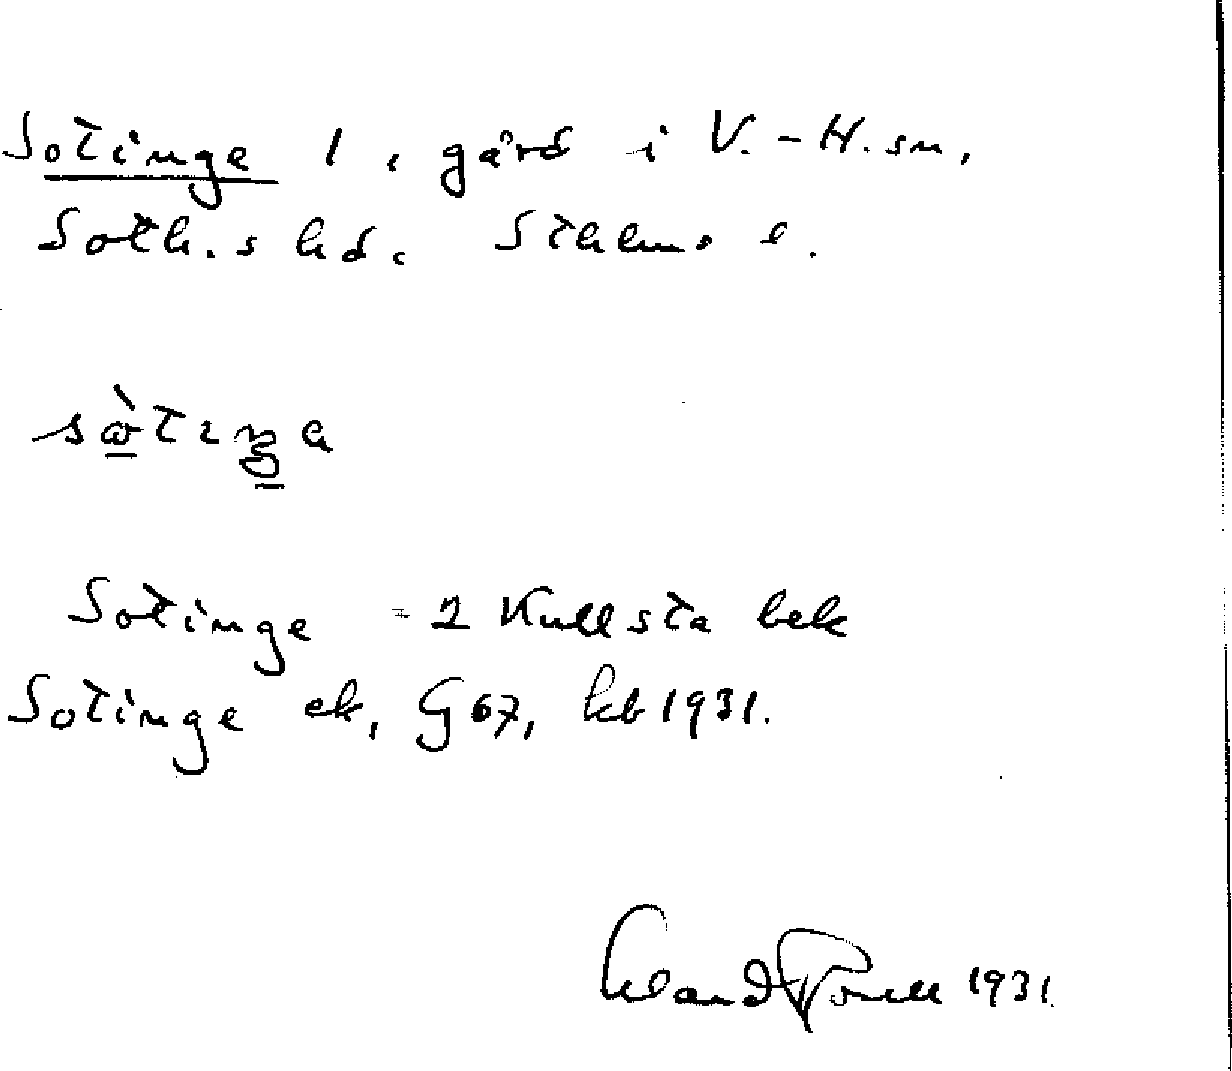 Sotinge 1, gård i V.-H. sn,
Soth.s hd. Sthlms l.
Sotinge = 2 Kullsta bek
Sotinge ek, G 67, kb 1931.
1931